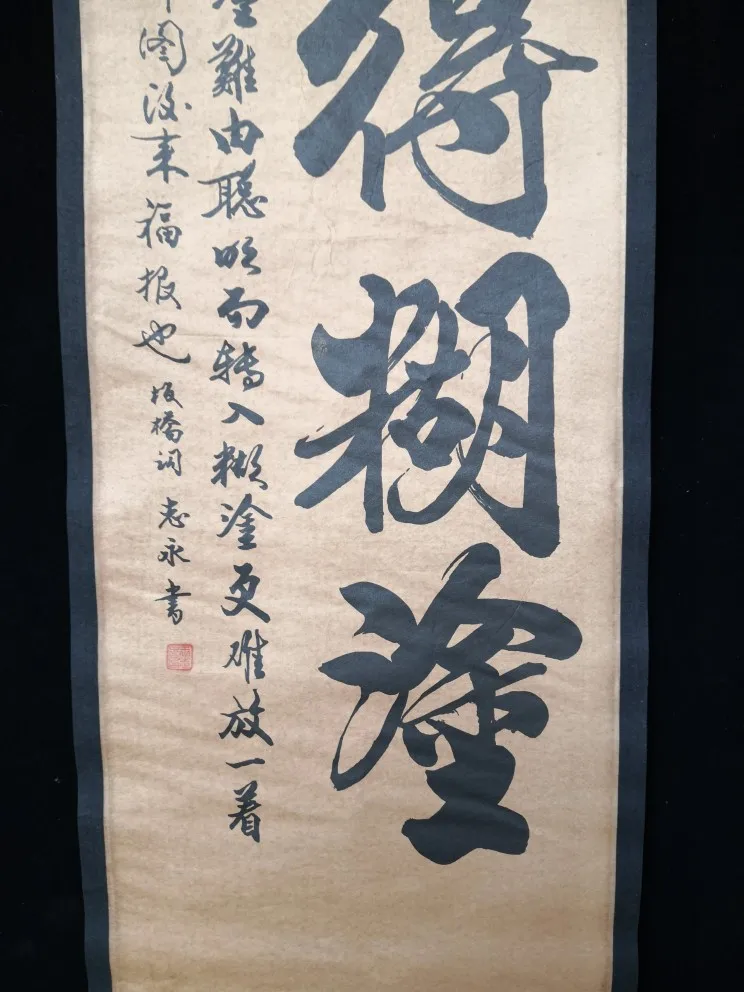 得糊塗
塗難由聰明而轉入糊塗更難放一着
非圖後来福报也
板橋词 志永書